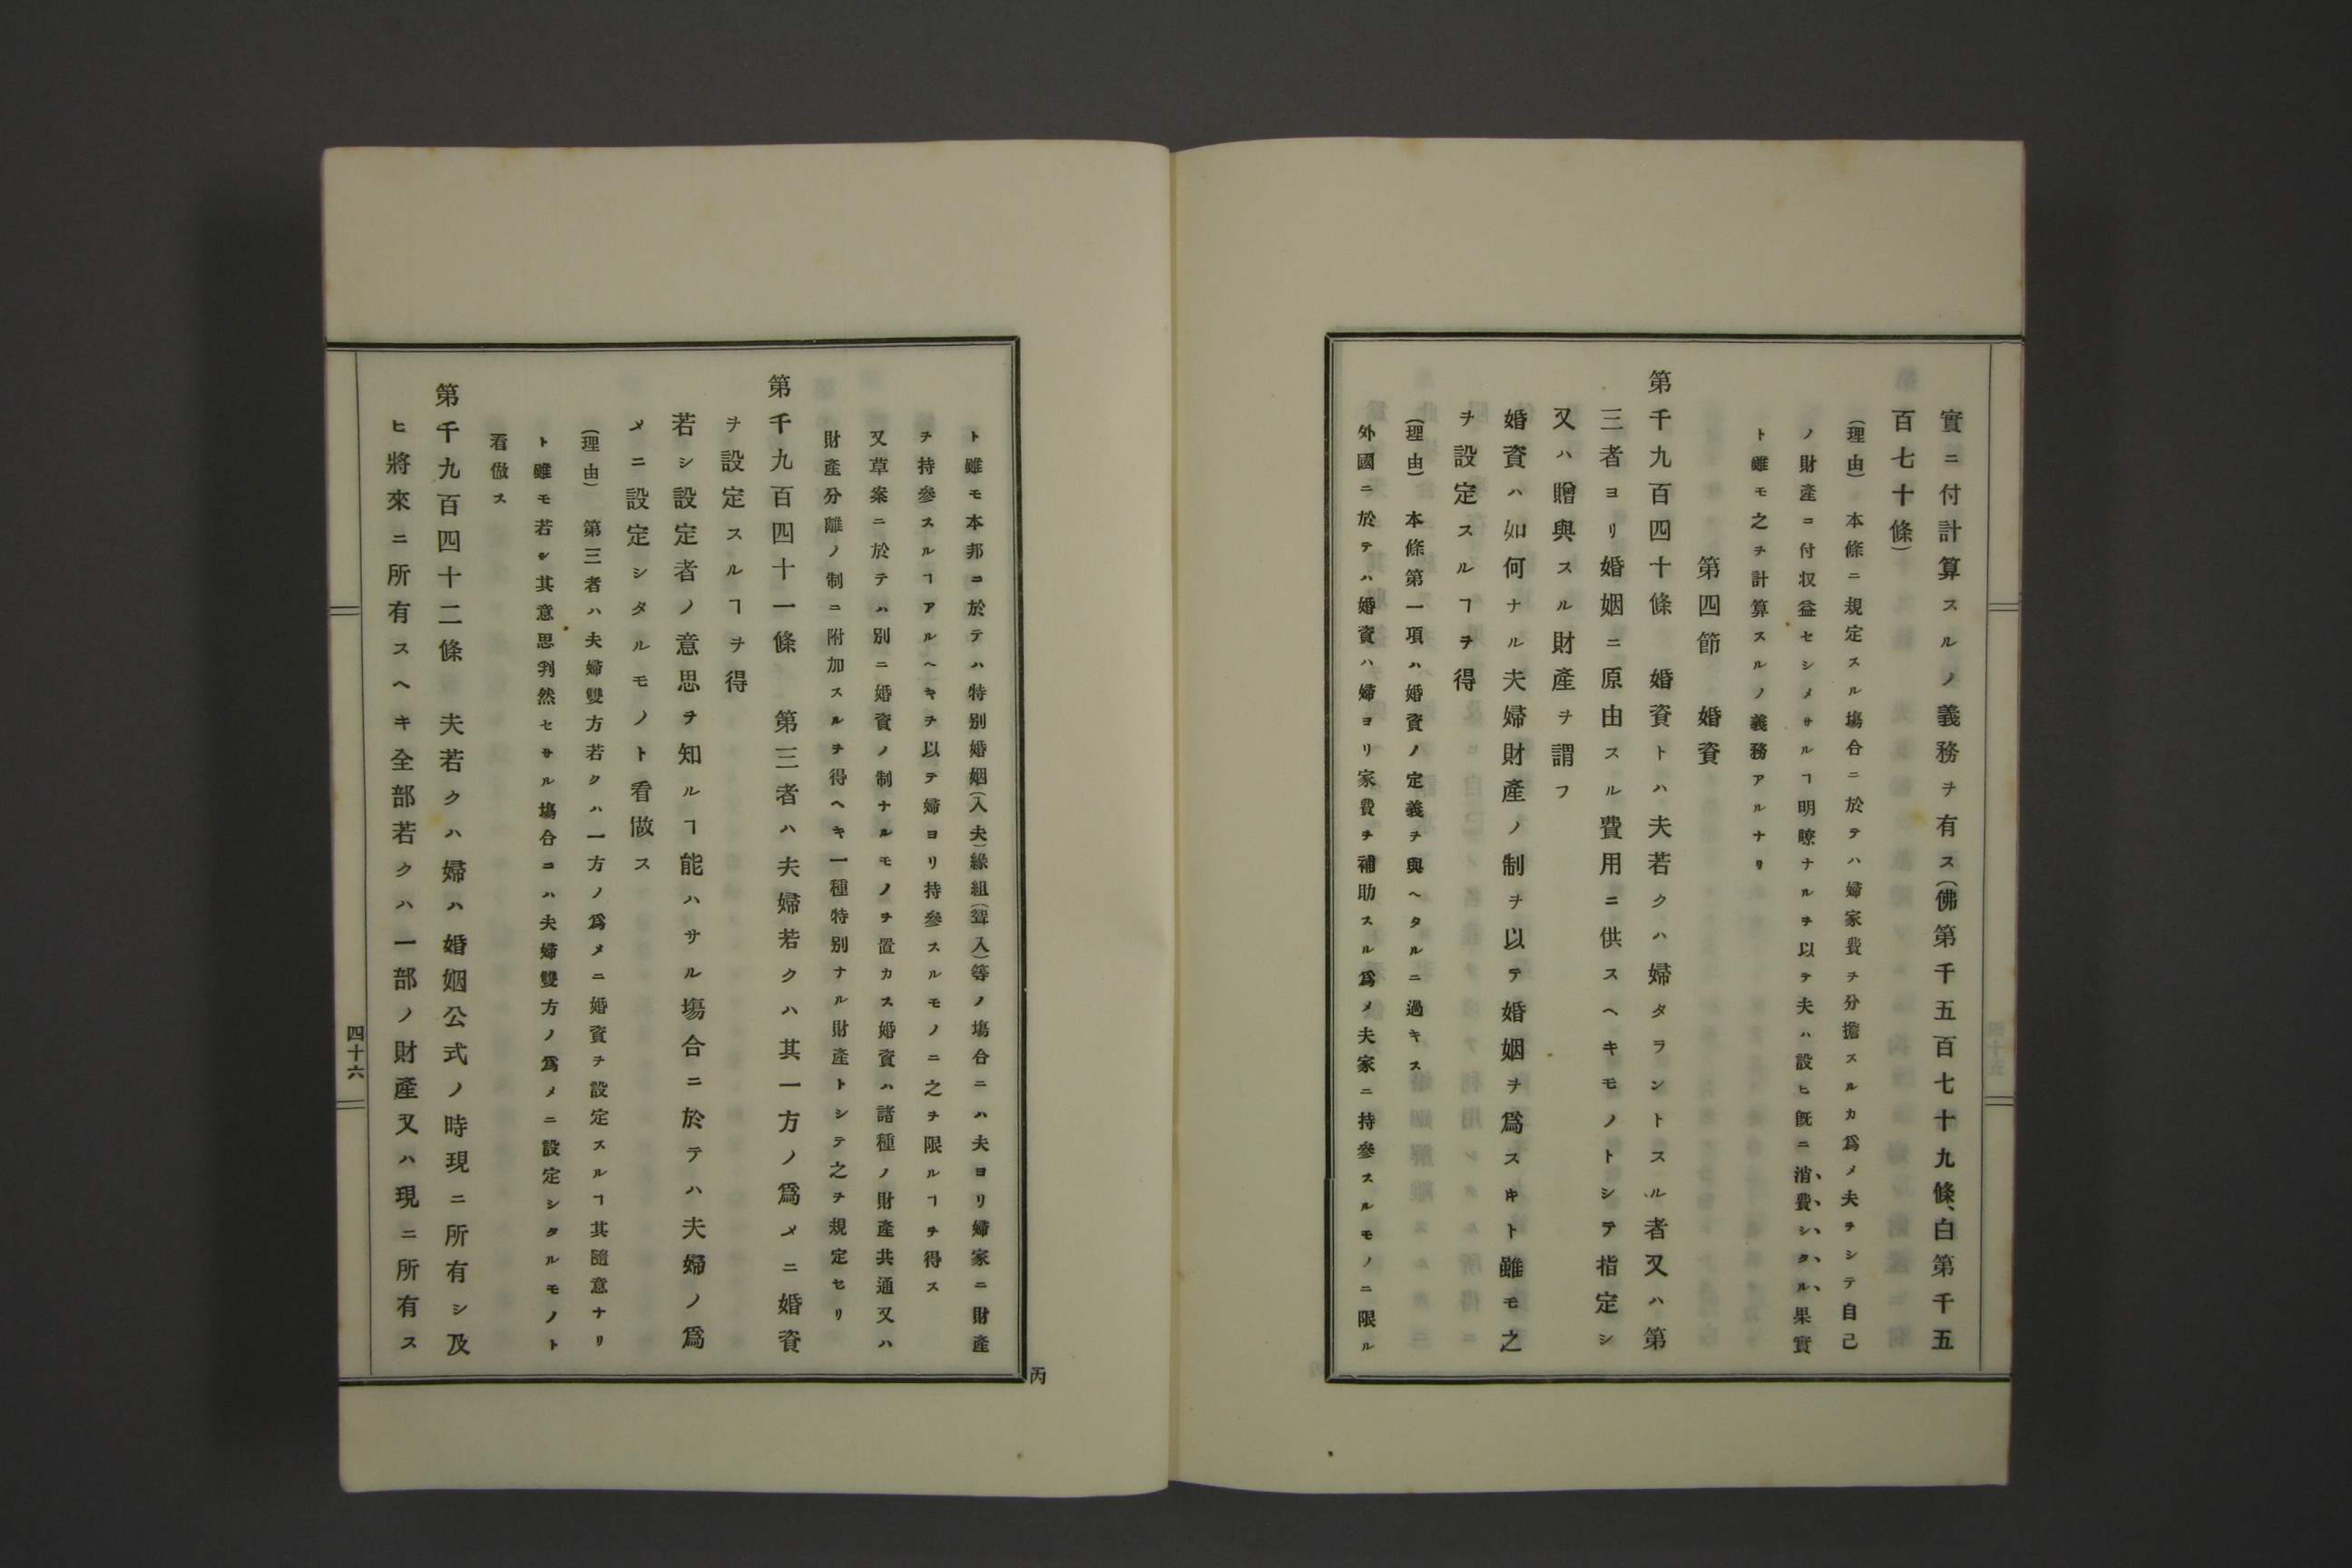 實ニ付計算スルノ義務ヲ有ス(佛第千五百七十九條、白第千五
百七十條)
(理由)　本條ニ規定スル塲合ニ於テハ婦家費ヲ分擔スルカ爲メ夫ヲシテ自己
ノ財產ニ付収益セシメサルヿ明瞭ナルヲ以テ夫ハ設ヒ既ニ消費シタル果實
ト雖モ之ヲ計算スルノ義務アルナリ
第四節　婚資
第千九百四十條　婚資トハ夫若クハ婦タラントスル者又ハ第
三者ヨリ婚姻ニ原由スル費用ニ供スヘキモノトシテ指定シ
又ハ贈與スル財產ヲ謂フ
婚資ハ如何ナル夫婦財產ノ制ヲ以テ婚姻ヲ爲スキト雖モ之
ヲ設定スルヿヲ得
(理由)　本條第一項ハ婚資ノ定義ヲ與ヘタルニ過キス
外國ニ於テハ婚資ハ婦ヨリ家費ヲ補助スル爲メ夫家ニ持參スルモノニ限ル
ト雖モ本邦ニ於テハ特別婚姻(入夫)緣組(聟入)等ノ塲合ニハ夫ヨリ婦家ニ財產
ヲ持參スルヿアルヘキヲ以テ婦ヨリ持參スルモノニ之ヲ限ルヿヲ得ス
又草案ニ於テハ別ニ婚資ノ制ナルモノヲ置カス婚資ハ諸種ノ財產共通又ハ
財產分離ノ制ニ附加スルヲ得ヘキ一種特別ナル財產トシテ之ヲ規定セリ
第千九百四十一條　第三者ハ夫婦若クハ其一方ノ爲メニ婚資
ヲ設定スルヿヲ得
若シ設定者ノ意思ヲ知ルヿ能ハサル塲合ニ於テハ夫婦ノ爲
メニ設定シタルモノト看做ス
(理由)　第三者ハ夫婦雙方若クハ一方ノ爲メニ婚資ヲ設定スルヿ其隨意ナリ
ト雖モ若シ其意思判然セサル塲合ニハ夫婦雙方ノ爲メニ設定シタルモノト
看做ス
第千九百四十二條　夫若クハ婦ハ婚姻公式ノ時現ニ所有シ及
ヒ將來ニ所有スヘキ全部若クハ一部ノ財產又ハ現ニ所有ス
四十六
丙